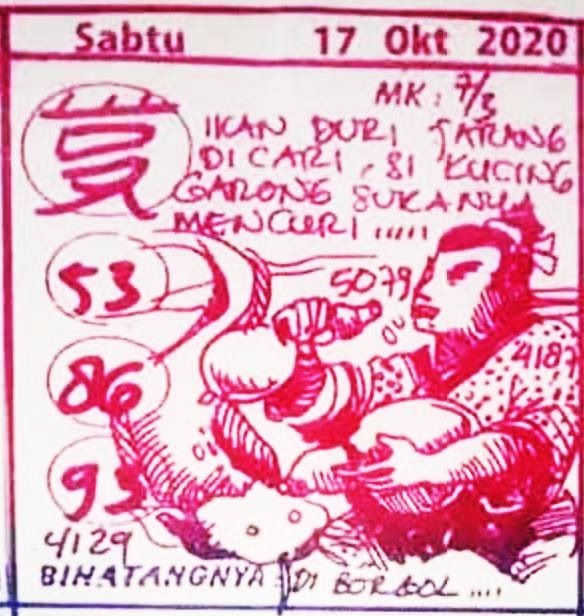 Sabtu 17 Okt 2020
MK: 7/3
IKAN DURI JARANG
DI CARI, SI KUCING
GARONG SUKANYA
MENCURI .....
53
5079
4187
86
93
4129
BINATANGNYA DI BORGOL ....